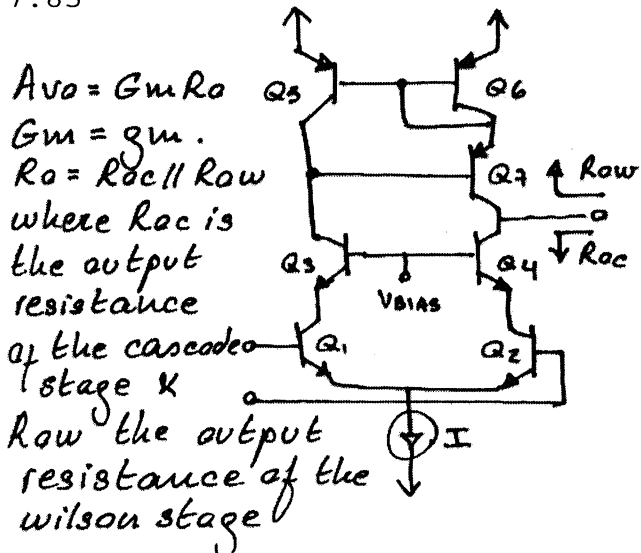 7.85
Avo = Gm Ro
Gm = gm.
Ro = Roc // Row
where Roc is
the output
resistance
of the cascode
stage &
Row the output
resistance of the
wilson stage
Q5
Q6
Q7
Row
Q3
Q4
Roc
VBIAS
Q1
Q2
I